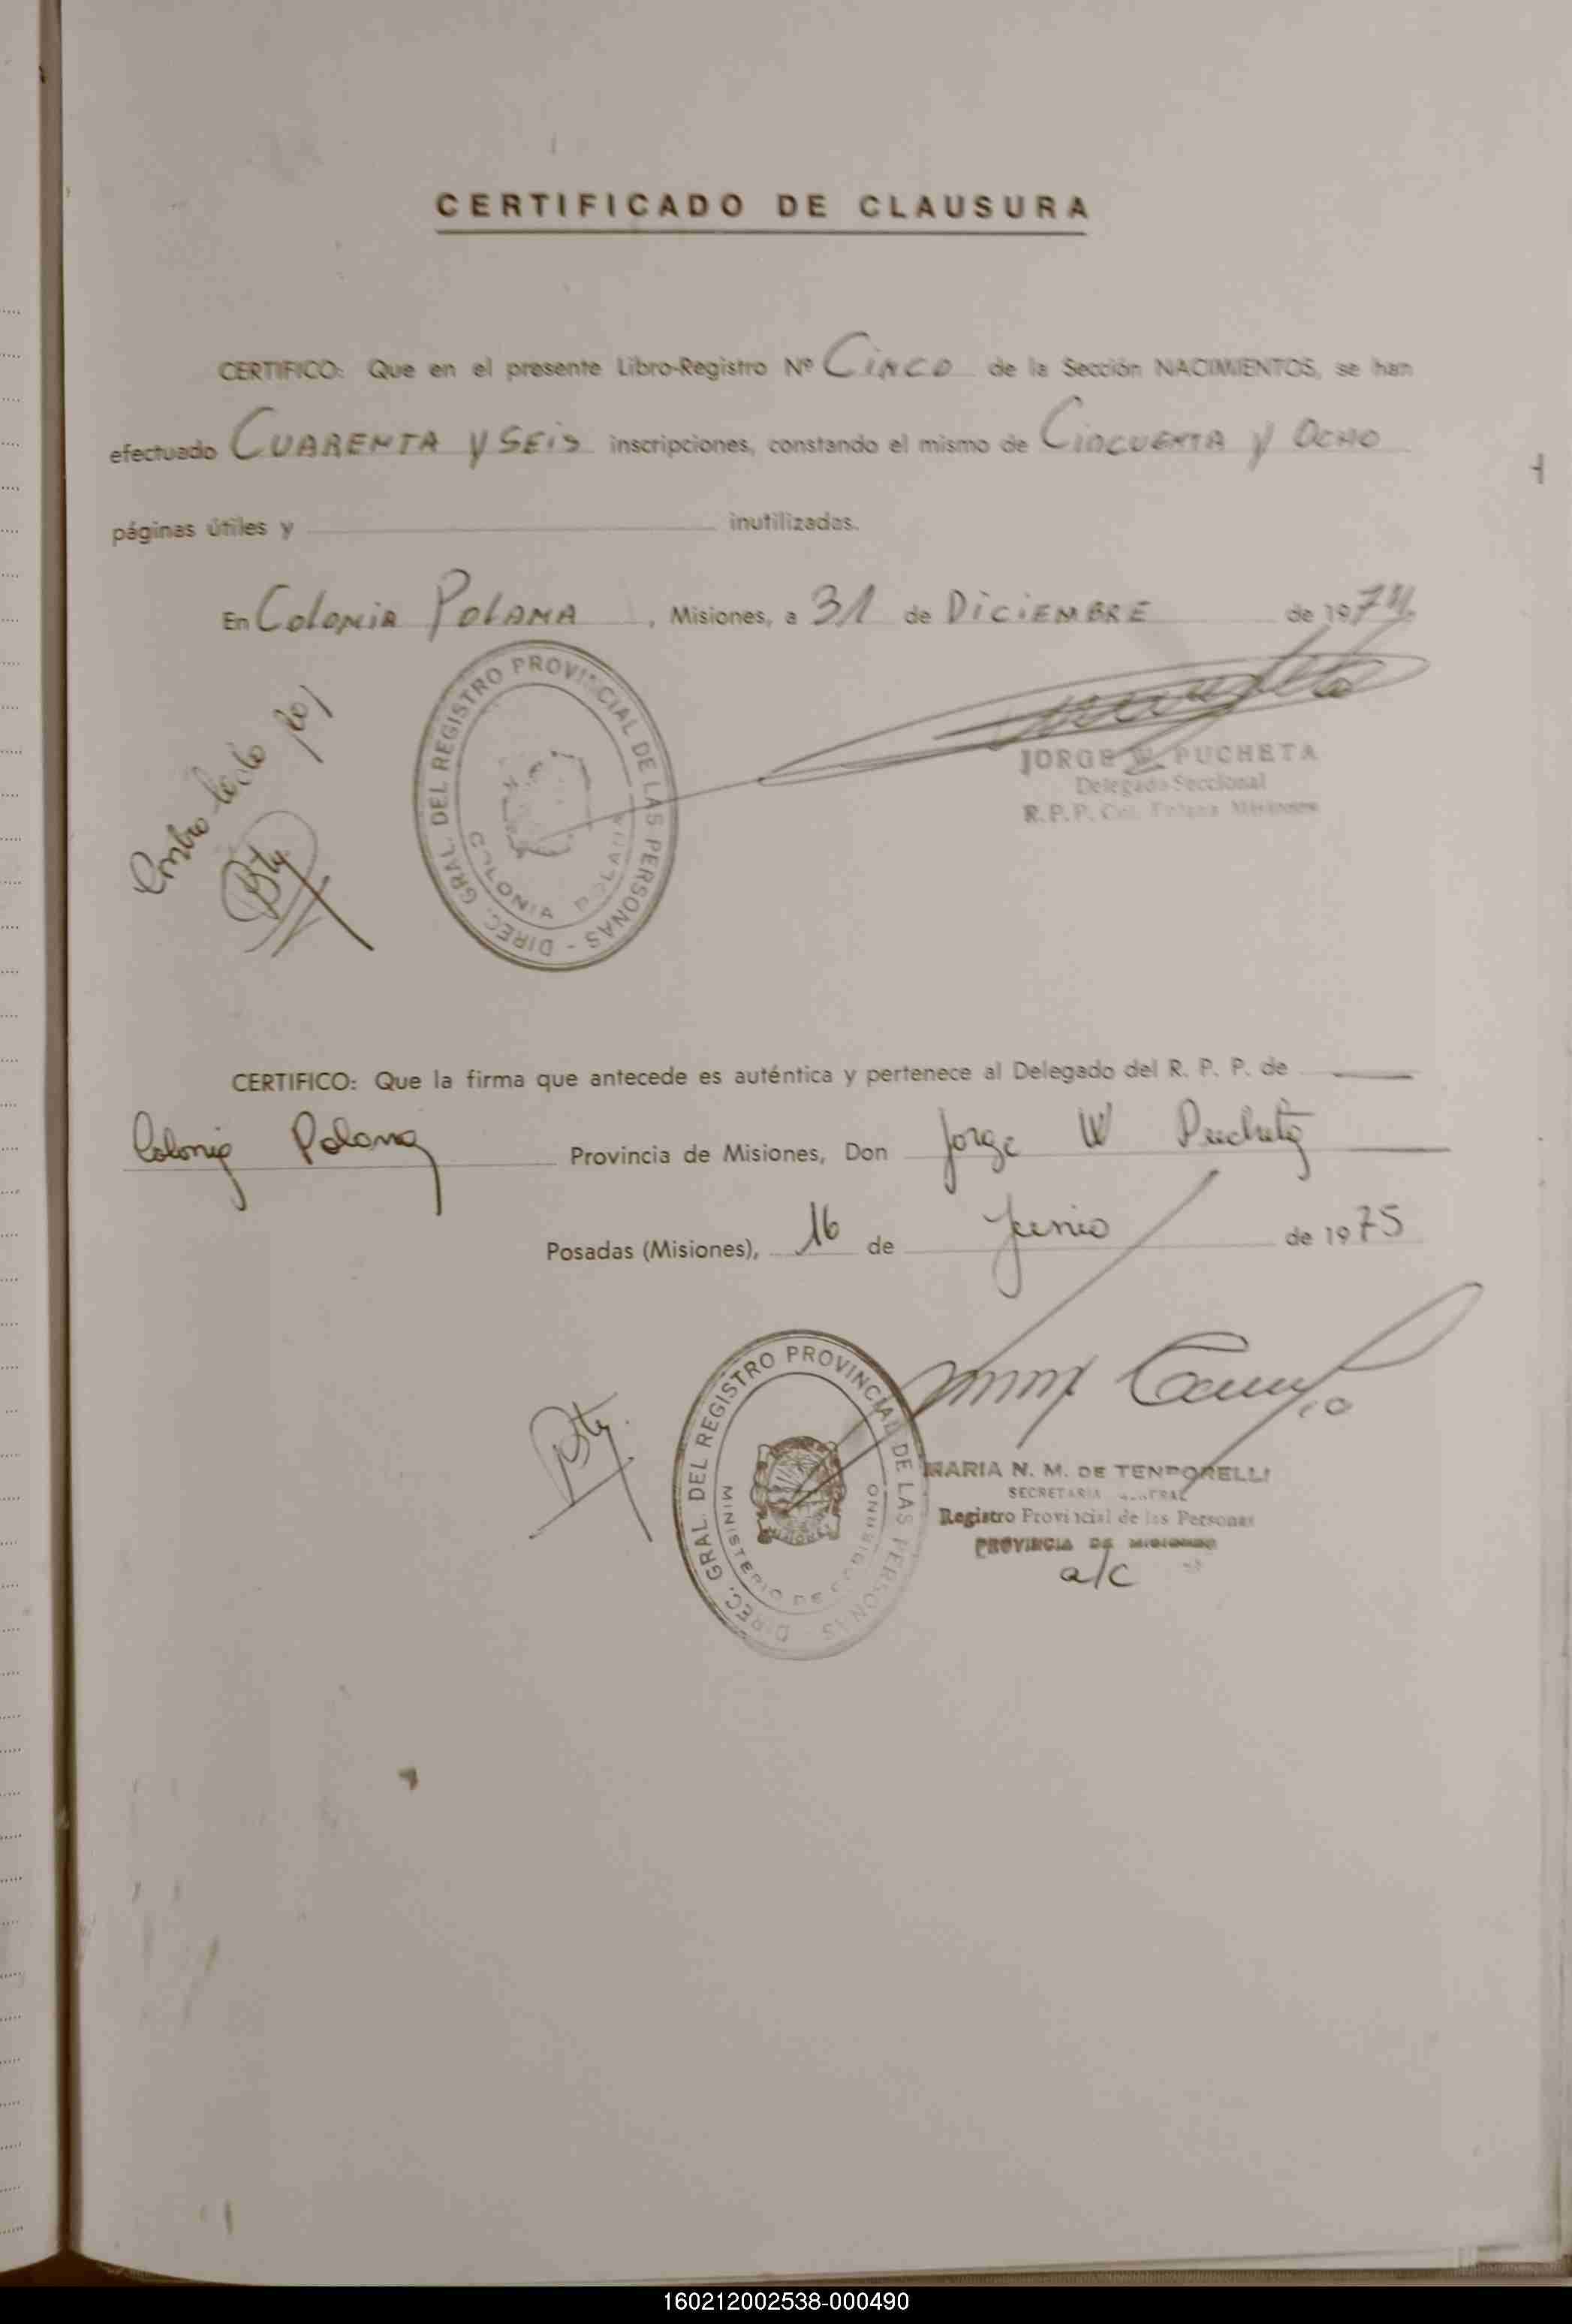 CERTIFICADO DE CLAUSURA
CERTIFICO: Que en el presente Libro-Registro Nº Cinco de la Sección NACIMIENTOS, se han
efectuado CUARENTA y SEIS inscripciones, constando el mismo de CINCUENTA y OCHO
páginas útiles y inutilizadas.
En Colonia POLANA, Misiones, a 31 de DiCiEMBRE de 1974.
DIREC. GRAL. DEL REGISTRO PROVINCIAL DE LAS PERSONAS -
COLONIA POLANA
JORGE W. PUCHETA
Delegado Seccional
R.P.P. Col. Polana Misiones
por
CERTIFICO: Que la firma que antecede es auténtica y pertenece al Delegado del R. P. P. de
Colonia Polana Provincia de Misiones, Don Jorge W Pucheta
Posadas (Misiones), 16 de Junio de 1975
DIREC. GRAL. DEL REGISTRO PROVINCIAL DE LAS PERSONAS -
MINISTERIO DE GOBIERNO
MARIA N. M. DE TEMPORELLI
SECRETARIA GENERAL
Registro Provincial de las Personas
PROVINCIA DE MISIONES
a/c
160212002538-000490